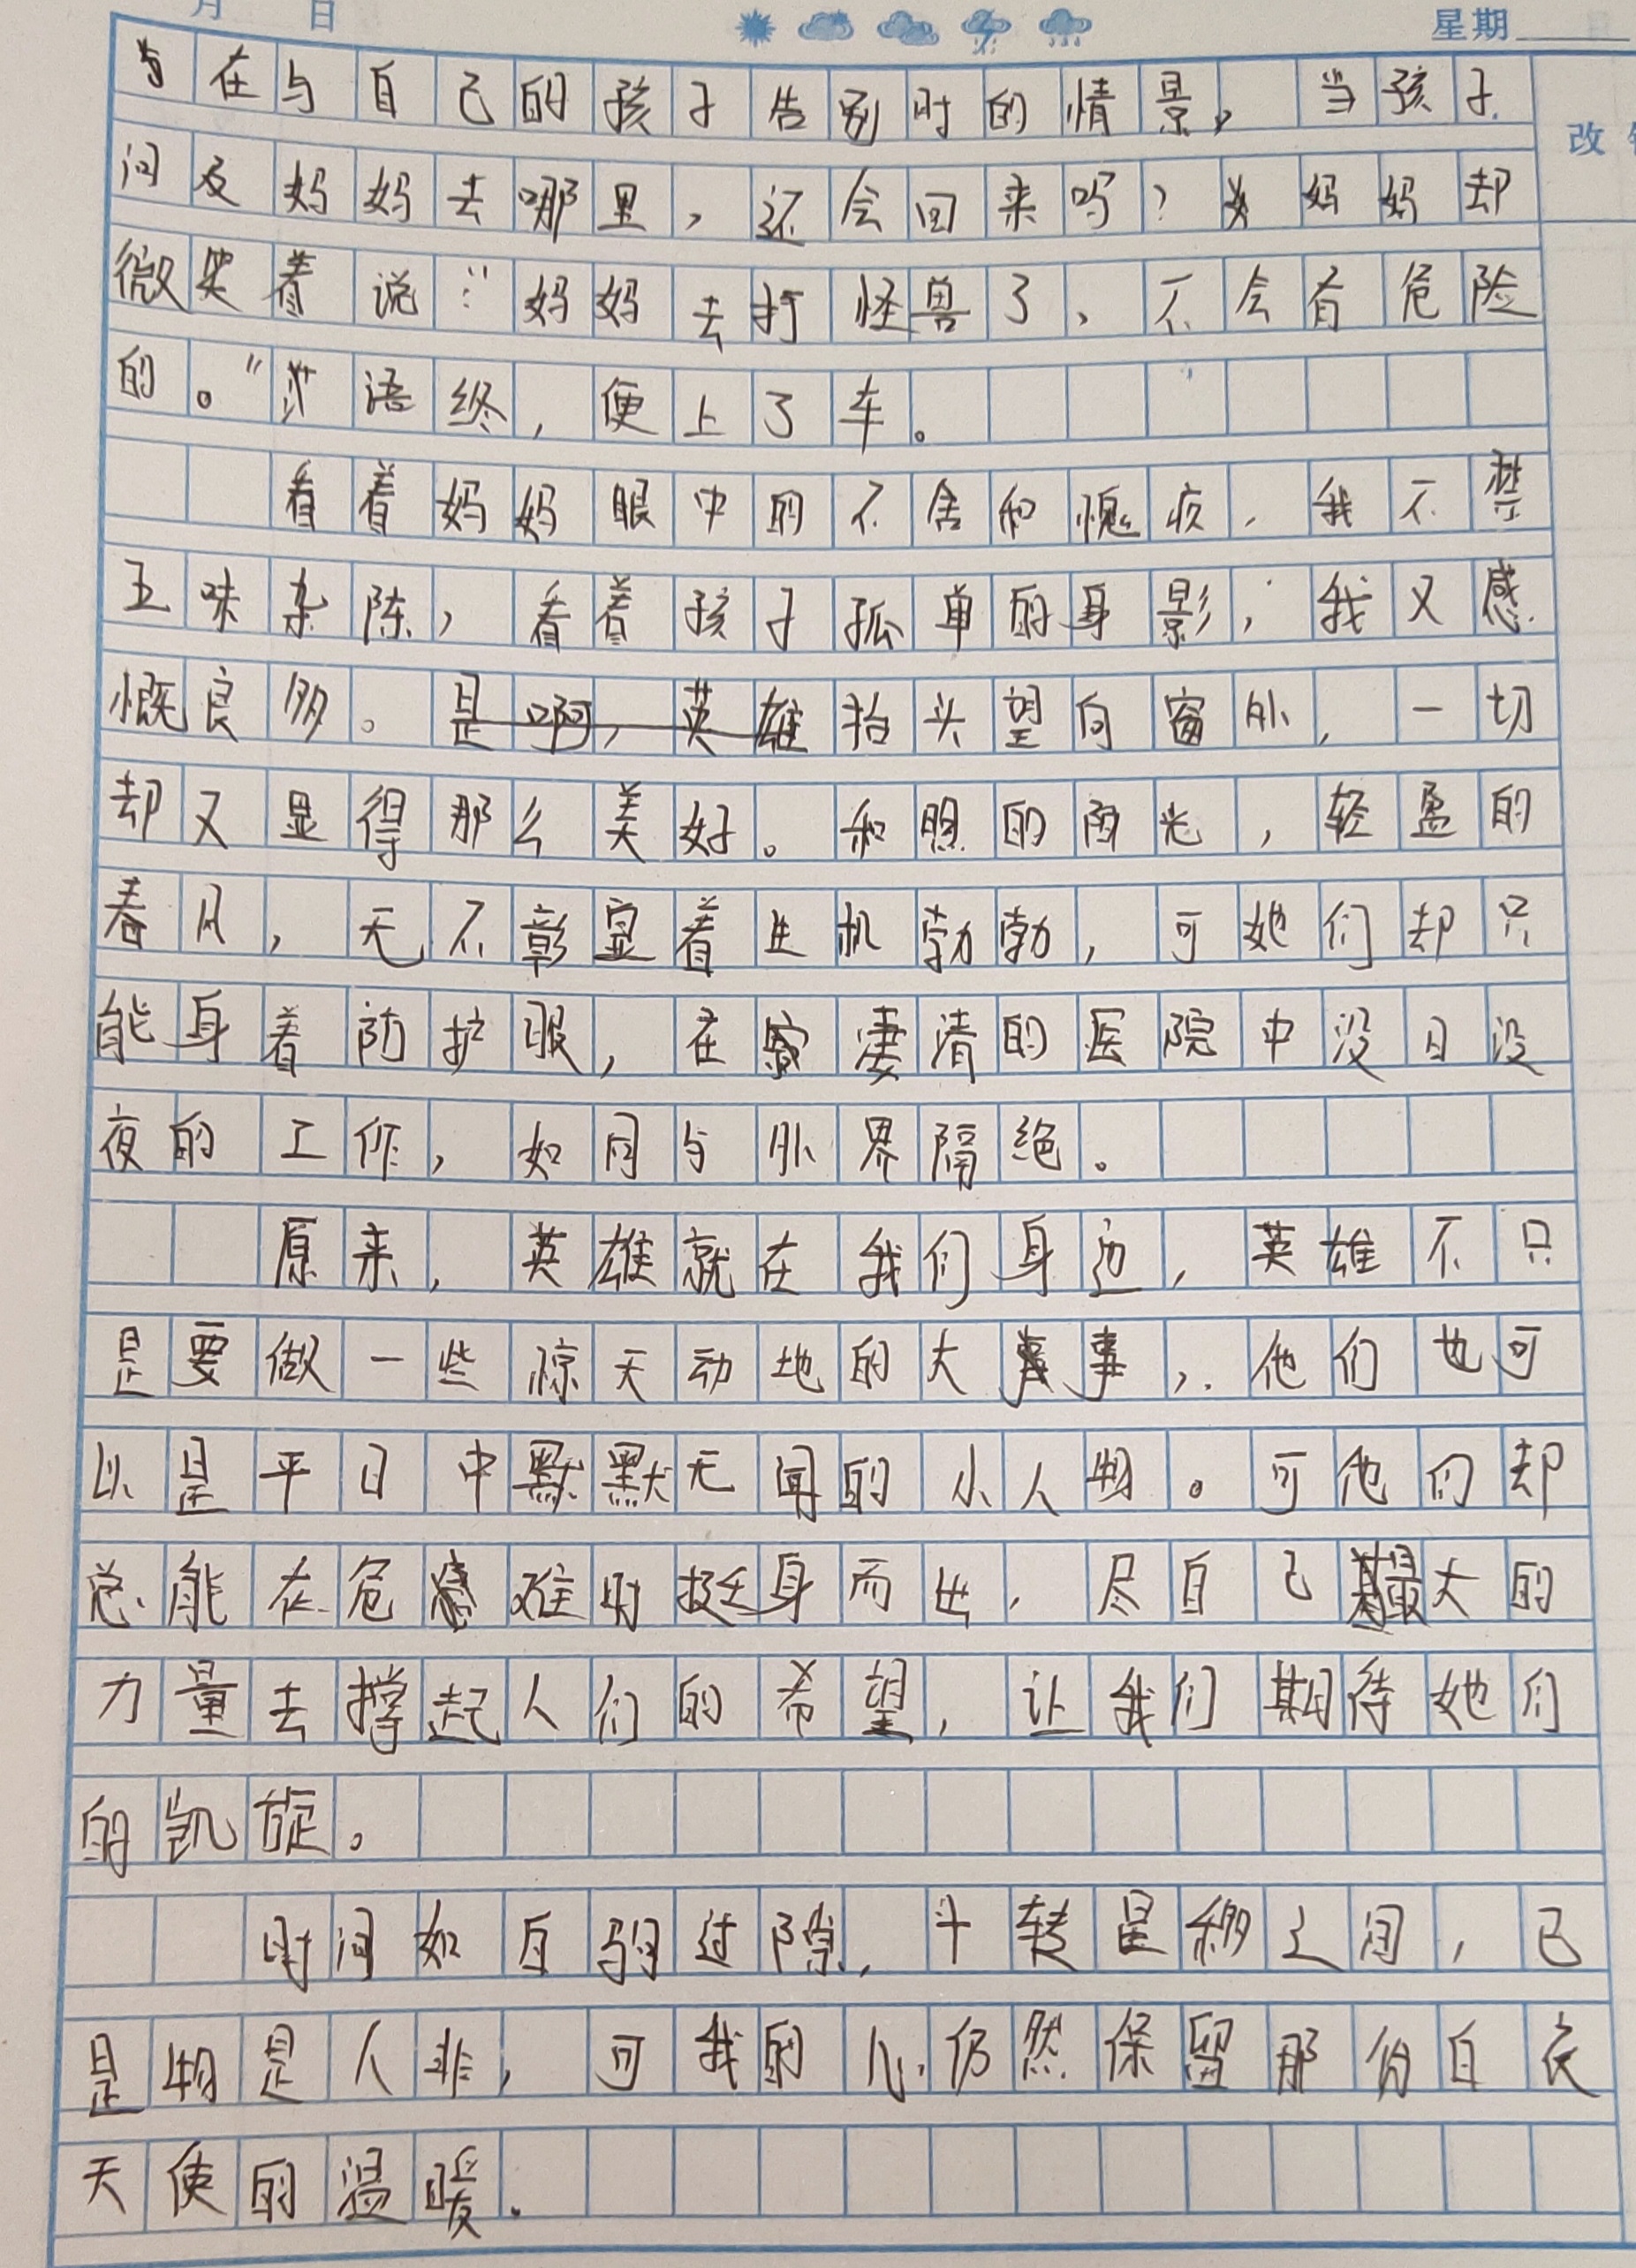 月 日 星期
在与自己的孩子告别时的情景，当孩子
改
问及妈妈去哪里，还会回来吗？妈妈却
微笑着说：“妈妈去打怪兽了，不会有危险
的。”语终，便上了车。
看着妈妈眼中的不舍和愧疚，我不禁
五味杂陈，看着孩子孤单的身影，我又感
慨良多。抬头望向窗外，一切
却又显得那么美好。和煦的阳光，轻盈的
春风，无不彰显着生机勃勃，可她们却只
能身着防护服，在凄清的医院中没日没
夜的工作，如同与外界隔绝。
原来，英雄就在我们身边，英雄不只
是要做一些惊天动地的大事，他们也可
以是平日中默默无闻的小人物。可他们却
总能在危难时挺身而出，尽自己最大的
力量去撑起人们的希望，让我们期待她们
的凯旋。
时间如白驹过隙，斗转星移之间，已
是物是人非，可我的心仍然保留那份白衣
天使的温暖。